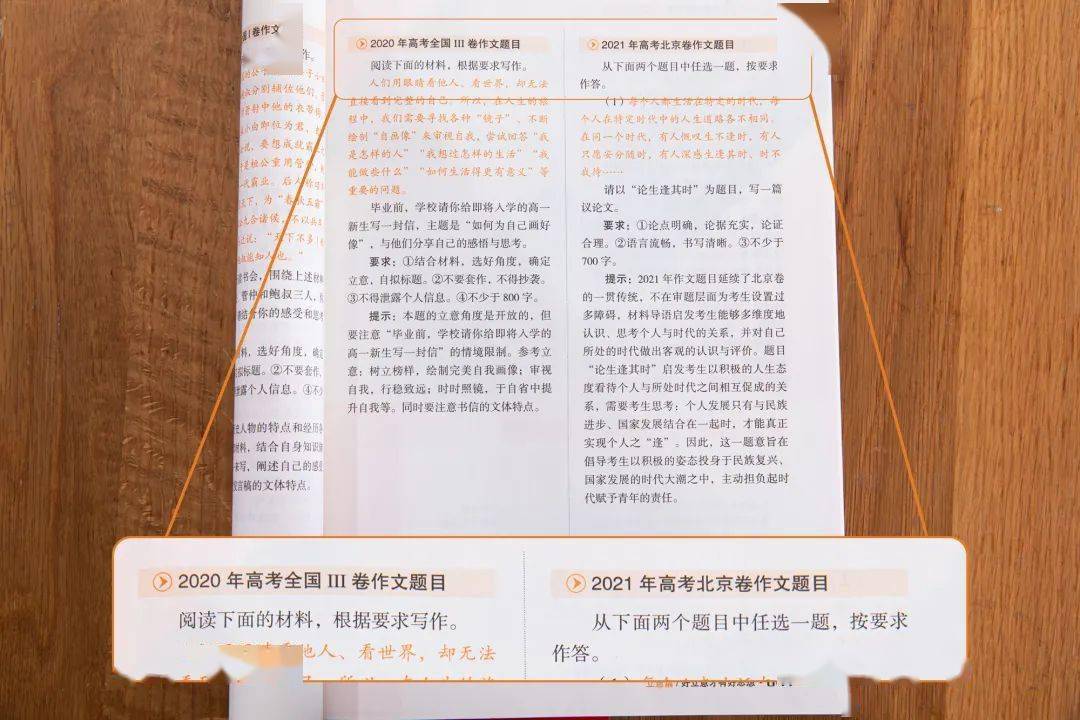 卷作文
2020 年高考全国 III 卷作文题目
阅读下面的材料，根据要求写作。
人们用眼睛看他人、看世界，却无法
直接看到完整的自己。所以，在人生的旅
程中，我们需要寻找各种“镜子”、不断
绘制“自画像”来审视自我，尝试回答“我
是怎样的人”“我想过怎样的生活”“我
能做些什么”“如何生活得更有意义”等
重要的问题。
毕业前，学校请你给即将入学的高一
新生写一封信，主题是“如何为自己画好
像”，与他们分享自己的感悟与思考。
要求：①结合材料，选好角度，确定
立意，自拟标题。②不要套作，不得抄袭。
③不得泄露个人信息。④不少于 800 字。
提示：本题的立意角度是开放的，但
要注意“毕业前，学校请你给即将入学的
高一新生写一封信”的情境限制。参考立
意：树立榜样，绘制完美自我画像；审视
自我，行稳致远；时时照镜，于自省中提
升自我等。同时要注意书信的文体特点。
2021 年高考北京卷作文题目
从下面两个题目中任选一题，按要求
作答。
（1）每个人都生活在特定的时代，每
个人在特定时代中的人生道路各不相同。
在同一个时代，有人慨叹生不逢时，有人
只愿安分随时，有人深感生逢其时、时不
我待……
请以“论生逢其时”为题目，写一篇
议论文。
要求：①论点明确，论据充实，论证
合理。②语言流畅，书写清晰。③不少于
700 字。
提示：2021 年作文题目延续了北京卷
的一贯传统，不在审题层面为考生设置过
多障碍，材料导语启发考生能够多维度地
认识、思考个人与时代的关系，并对自己
所处的时代做出客观的认识与评价。题目
“论生逢其时”启发考生以积极的人生态
度看待个人与所处时代之间相互促成的关
系，需要考生思考：个人发展只有与民族
进步、国家发展结合在一起时，才能真正
实现个人之“逢”。因此，这一题意旨在
倡导考生以积极的姿态投身于民族复兴、
国家发展的时代大潮之中，主动担负起时
代赋予青年的责任。
书会，围绕上述材料
管仲和鲍叔三人，
结合你的感受和思
料，选好角度，确定
拟标题。②不要套作，
露个人信息。④不
史人物的特点和经历
材料，结合自身知识
写，阐述自己的感
言稿的文体特点。
2020 年高考全国 III 卷作文题目
阅读下面的材料，根据要求写作。
他人、看世界，却无法
2021 年高考北京卷作文题目
从下面两个题目中任选一题，按要求
作答。